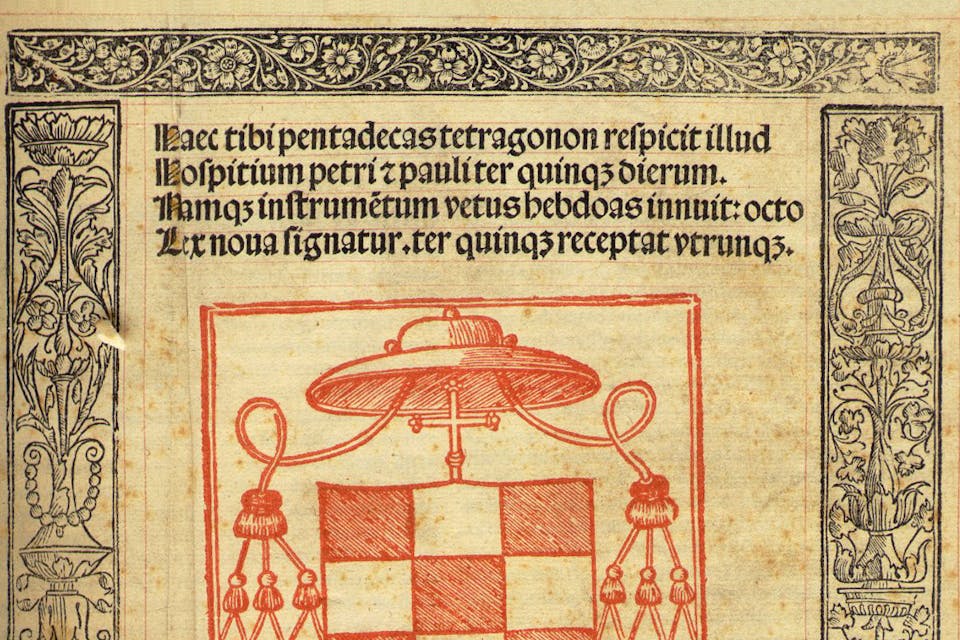 Haec tibi pentadecas tetragonon respicit illud
Hospitium petri ⁊ pauli ter quinqꝫ dierum.
Namqꝫ instrumētum vetus hebdoas innuit: octo
Lex noua signatur. ter quinqꝫ receptat vtrunqꝫ.